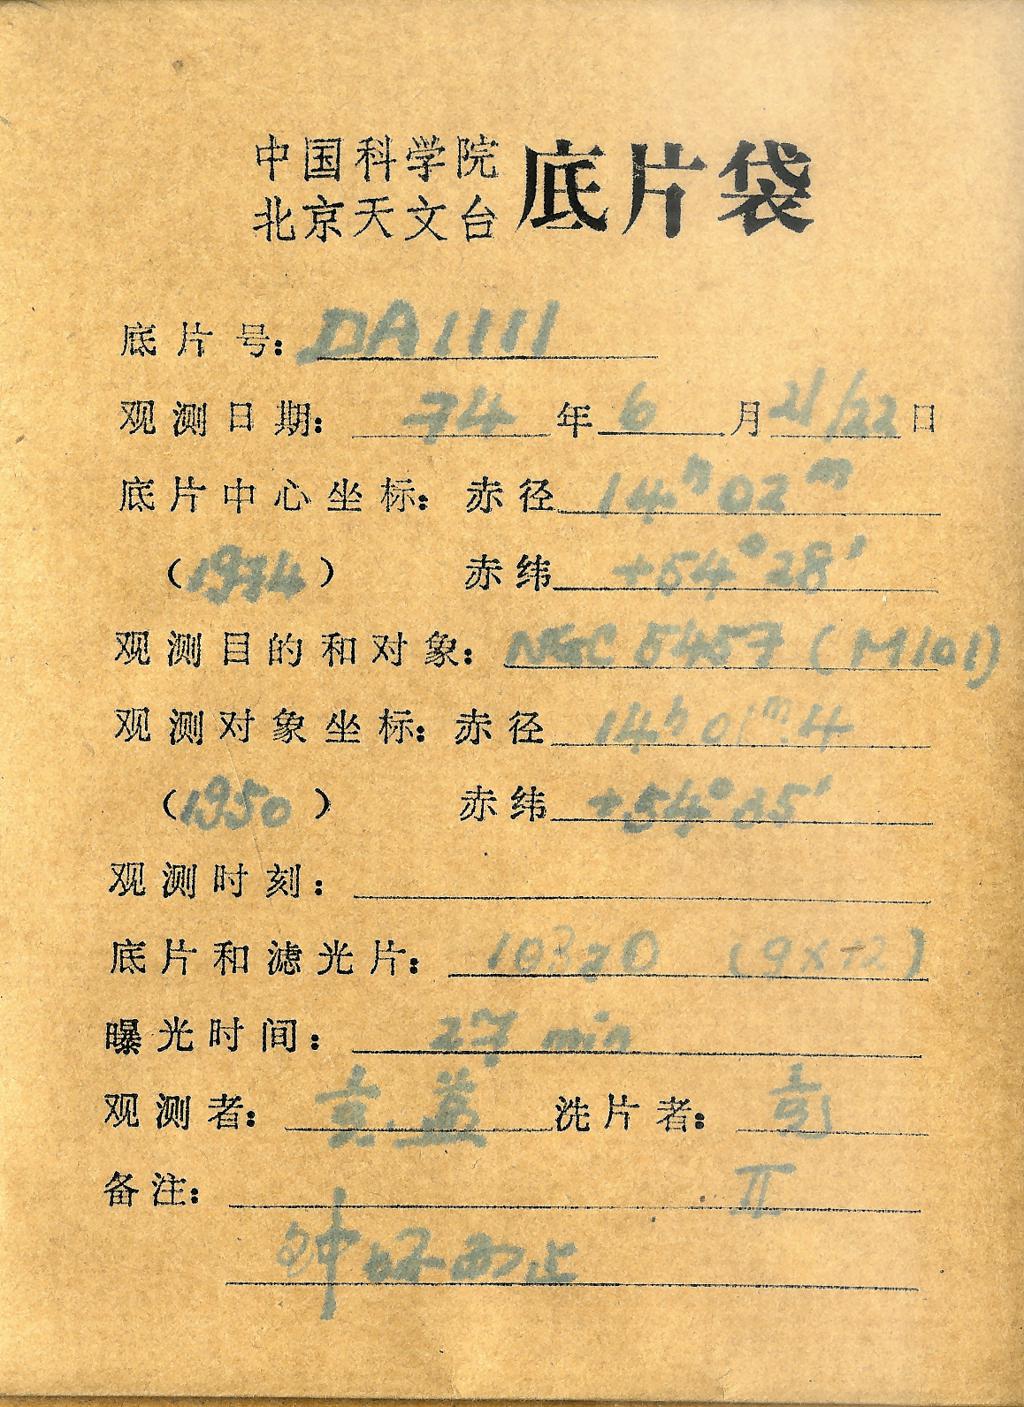 中国科学院
北京天文台 底片袋
底片号: DA1111
观测日期: 74年6月21/22日
底片中心坐标: 赤径 14h02m
(1974) 赤纬 +54°28′
观测目的和对象: NGC 5457 (M101)
观测对象坐标: 赤径 14h01m.4
(1950) 赤纬 +54°35′
观测时刻:
底片和滤光片: 103aO (9×12)
曝光时间: 27 min
观测者: 洗片者:
备注: II
钟